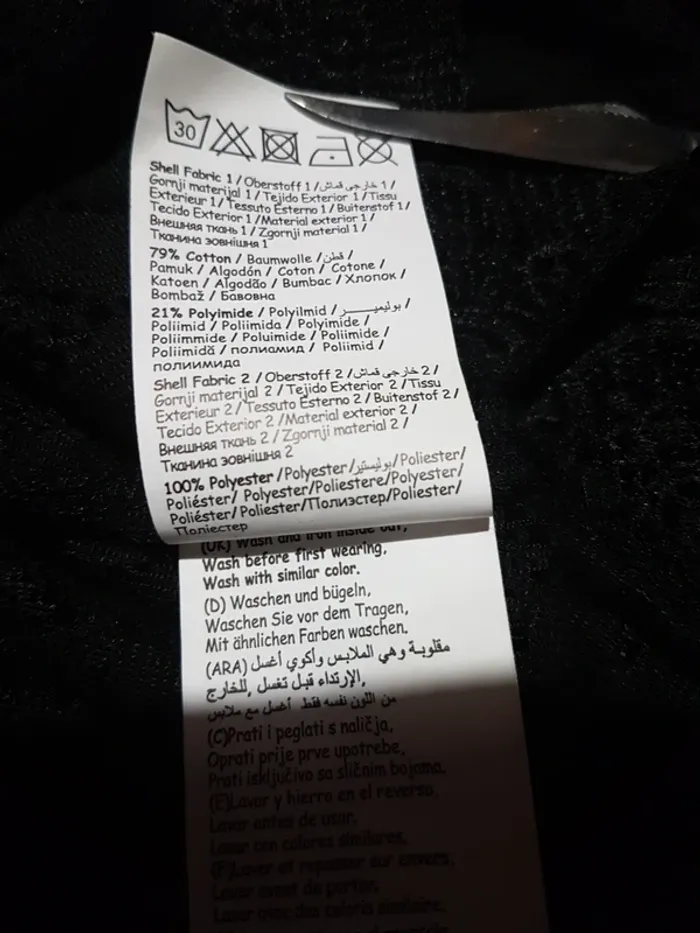 30
Shell Fabric 1 / Oberstoff 1 / خارجي قماش 1 /
Gornji materijal 1 / Tejido Exterior 1 / Tissu
Exterieur 1 / Tessuto Esterno 1 / Buitenstof 1 /
Tecido Exterior 1 / Material exterior 1 /
Внешняя ткань 1 / Zgornji material 1 /
Тканина зовнішня 1
79% Cotton / Baumwolle / قطن /
Pamuk / Algodón / Coton / Cotone /
Katoen / Algodão / Bumbac / Хлопок /
Bombaž / Бавовна
21% Polyimide / Polyilmid / بوليميــــر /
Poliimid / Poliimida / Polyimide /
Poliimmide / Poluimide / Poliimide /
Poliimidă / полиамид / Poliimid /
полиимида
Shell Fabric 2 / Oberstoff 2 / خارجي قماش 2 /
Gornji materijal 2 / Tejido Exterior 2 / Tissu
Exterieur 2 / Tessuto Esterno 2 / Buitenstof 2 /
Tecido Exterior 2 / Material exterior 2 /
Внешняя ткань 2 / Zgornji material 2 /
Тканина зовнішня 2
100% Polyester / Polyester / بوليستير / Poliester/
Poliéster/ Polyester/Poliestere/Polyester/
Poliéster/ Poliester/Полиэстер/Poliester/
Поліестер
(UK) Wash and iron inside out,
Wash before first wearing,
Wash with similar color.
(D) Waschen und bügeln,
Waschen Sie vor dem Tragen,
Mit ähnlichen Farben waschen.
(ARA) مقلوبة وهي الملابس وأكوي أغسل
الإرتداء قبل تغسل ,للخارج,
من اللون نفسه فقط أغسل مع ملابس
(C)Prati i peglati s naličja,
Oprati prije prve upotrebe,
Prati isključivo sa sličnim bojama.
(E)Lavar y hierro en el reverso,
Lavar antes de usar,
Lavar con colores similares.
(F)Laver et repasser sur envers,
Laver avant de porter.
Laver avec des coloris similaire.